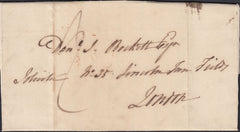 Danl. S. Bockett Esqr
Solicitor No. 35 Lincoln Inn Fields
London